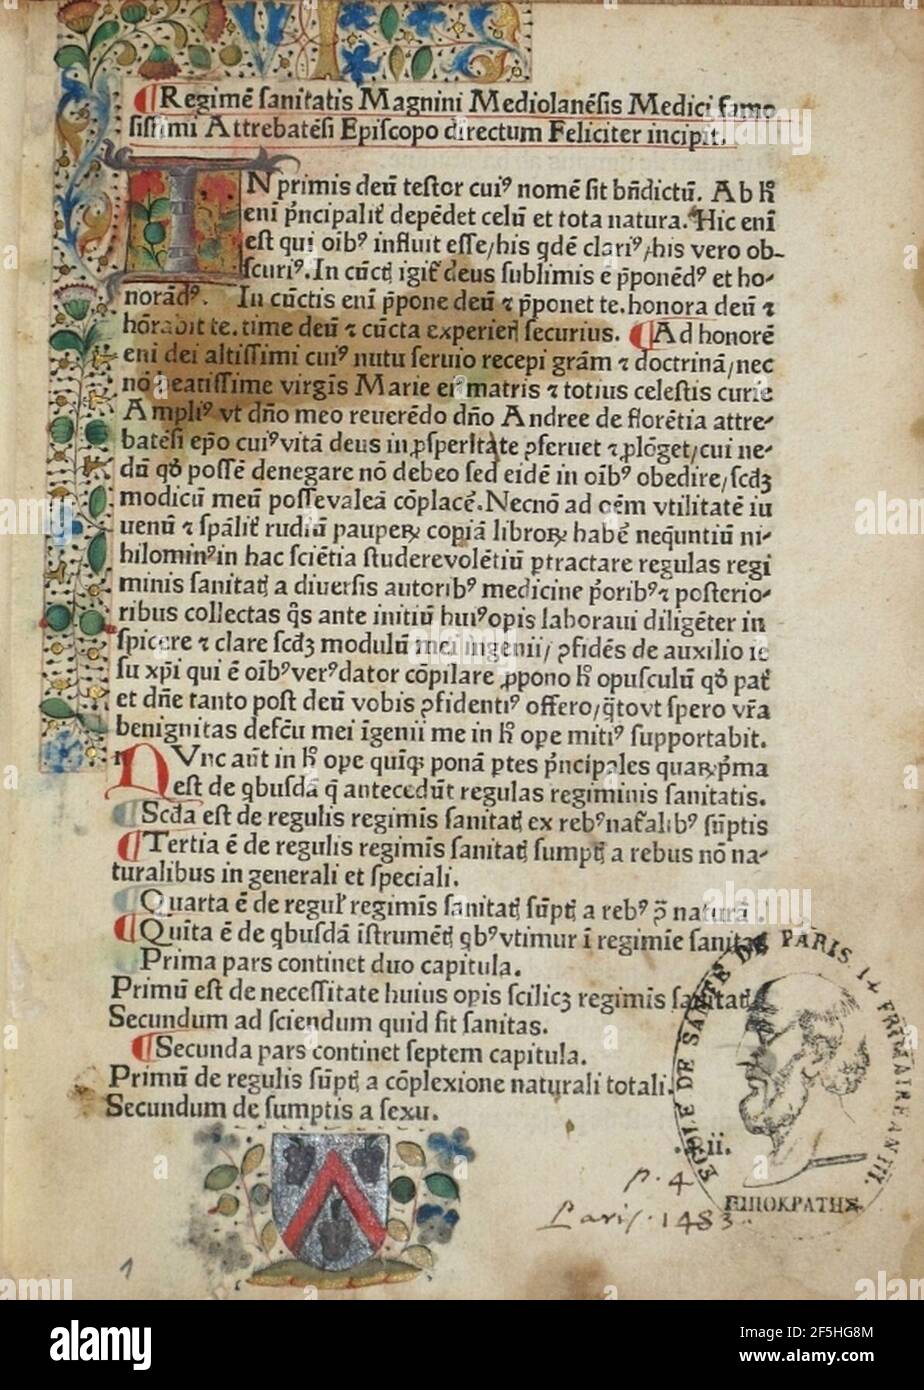 Regimē sanitatis Magnini Mediolanēsis Medici famo
sissimi Attrebatēsi Episcopo directum Feliciter incipit.
IN primis deū testor cuiꝰ nomē sit bn̄dictū. Ab
enī pͥncipalit depēdet celū et tota natura. Hic enī
est qui oībꝰ influit esse/his qͥdē clariꝰ/his vero ob-
scuriꝰ. In cūct igit deus sublimis ē p̄ponēdꝰ et ho-
norādꝰ. In cūctis enī p̄pone deū ⁊ p̄ponet te. honora deū ⁊
hōrabit te. time deū ⁊ cūcta experieri securius. Ad honorē
enī dei altissimi cuiꝰ nutu seruio recepi grām ⁊ doctrinā/nec
nō beatissime virgīs Marie eiꝰ matris ⁊ totius celestis curie
Ampliꝰ vt dn̄o meo reuerēdo dn̄o Andree de florētia attre-
batēsi ep̄o cuiꝰ vitā deus in ꝓsperitate ꝯseruet ⁊ ꝓlōget/cui ne-
dū qd possē denegare nō debeo sed eidē in oībꝰ obedire/scdꝫ
modicū meū posse valeā cōplacē. Necnō ad oēm vtilitatē iu
uenū ⁊ spālit rudiū pauperꝝ copiā libroꝝ habē nequntiū ni-
hilominꝰ in hac sciētia studere volētiū ptractare regulas regi
minis sanitat a diuersis autoribꝰ medicine pͥoribꝰ ⁊ posterio-
ribus collectas qͣs ante initiū huiꝰ opis laboraui diligēter in
spicere ⁊ clare scdꝫ modulū mei ingenii/ ꝯfidēs de auxilio ie
su xp̄i qui ē oībꝰ verꝰ dator cōpilare ꝓpono opusculū qd pat
et dn̄e tanto post deū vobis ꝯfidentiꝰ offero/qͣto vt spero vr̄a
benignitas defcū mei īgenii me in ope mitiꝰ supportabit.
NVnc aūt in ope quīqꝫ ponā ptes pͥncipales quaꝝ pͥma
est de qͥbusdā q̄ antecedūt regulas regiminis sanitatis.
Scd̄a est de regulis regimīs sanitat ex rebꝰ nat̄alibꝰ sūptis
Tertia ē de regulis regimīs sanitat sumpt a rebus nō na-
turalibus in generali et speciali.
Quarta ē de regul regimīs sanitat sūpt a rebꝰ p̄ naturā.
Quīta ē de qͥbusdā īstrumēt qͥbꝰ vtimur ī regimīe sanitat
Prima pars continet duo capitula.
Primū est de necessitate huius opis scilicꝫ regimīs sanitat
Secundum ad sciendum quid sit sanitas.
Secunda pars continet septem capitula.
Primū de regulis sūpt a cōplexione naturali totali.
Secundum de sumptis a sexu.
.ii.
p. 4
Paris. 1483.
1
ECOLE DE SANTE DE PARIS 14 FRIMAIRE AN III.
ΙΠΠΟΚΡΑΤΗΣ
alamy
alamy
Image ID: 2F5HG8M
www.alamy.com